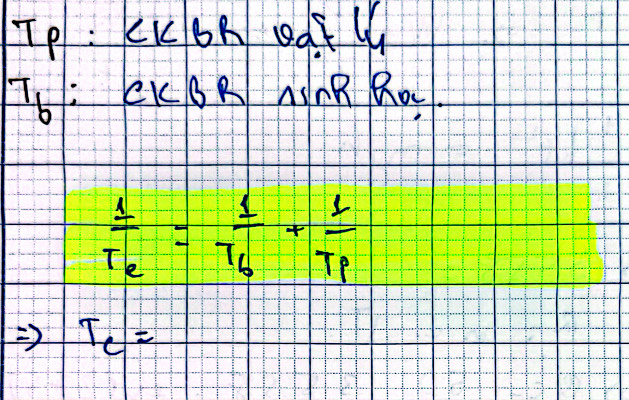 Tp : CKBR vật lý
Tb : CKBR sinh học.
1/Te = 1/Tb + 1/Tp
=> Te =